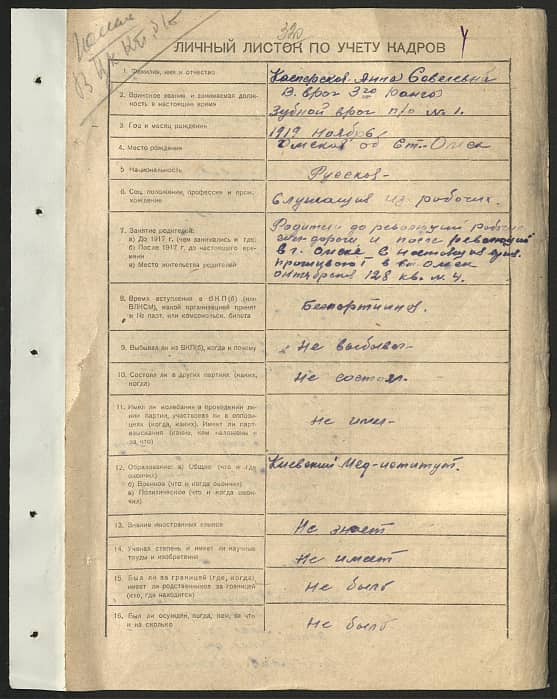 320
ЛИЧНЫЙ ЛИСТОК ПО УЧЕТУ КАДРОВ
1. Фамилия, имя и отчество
Касперская Анна Савельевна
2. Воинское звание и занимаемая долж-
ность в настоящее время
В. врач 3го ранга
Зубной врач п/о № 1.
3. Год и месяц рождения
1919 Ноябрь
4. Место рождения
Омской об Ст. Омск
5. Национальность
Русская
6. Соц. положение, профессия и прои-
хождение
Служащая из рабочих.
7. Занятие родителей:
а) До 1917 г. (чем занимались и где)
б) После 1917 г. до настоящего вре-
мени
в) Место жительства родителей
Родители до революции рабочие
дороги и после революции
в г. Омске. В настоящее время
проживают в г. Омск
октябрьская 128 кв. № 4.
8. Время вступления в ВКП(б) (или
ВЛКСМ), какой организацией принят
и № парт. или комсомольск. билета
Беспартийная.
9. Выбывал ли из ВКП(б), когда и почему
Не выбывал
10. Состоял ли в других партиях (каких,
когда)
Не состоял.
11. Имел ли колебания в проведении ли-
нии партии, участвовал ли в оппози-
циях (когда, каких). Имеет ли парт-
взыскания (какие, кем наложены и
за что)
Не имел
12. Образование: а) Общее (что и когда
окончил)
б) Военное (что и когда окончил)
в) Политическое (что и когда окон-
чил)
Киевский Мед-иститут.
13. Знание иностранных языков
Не знает
14. Ученая степень и имеет ли научные
труды и изобретения
Не имеет
15. Был ли за границей (где, когда),
имеет ли родственников за границей
(кто, где находится)
Не был
16. Был ли осужден, когда, кем, за что
и на сколько
Не был